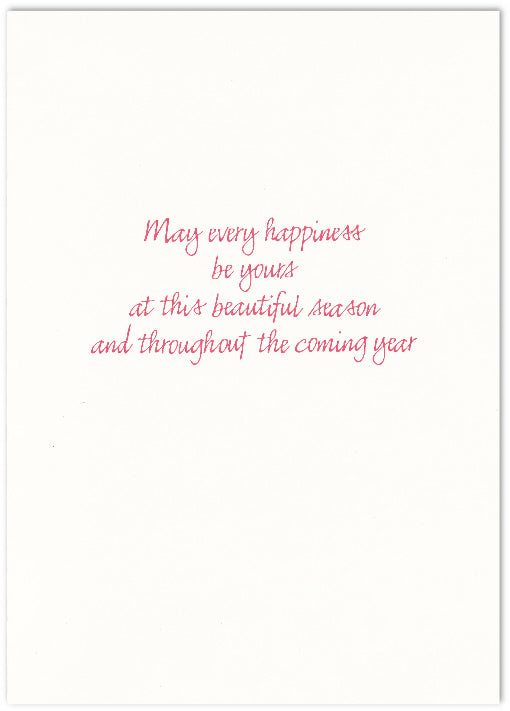 May every happiness
be yours
at this beautiful season
and throughout the coming year